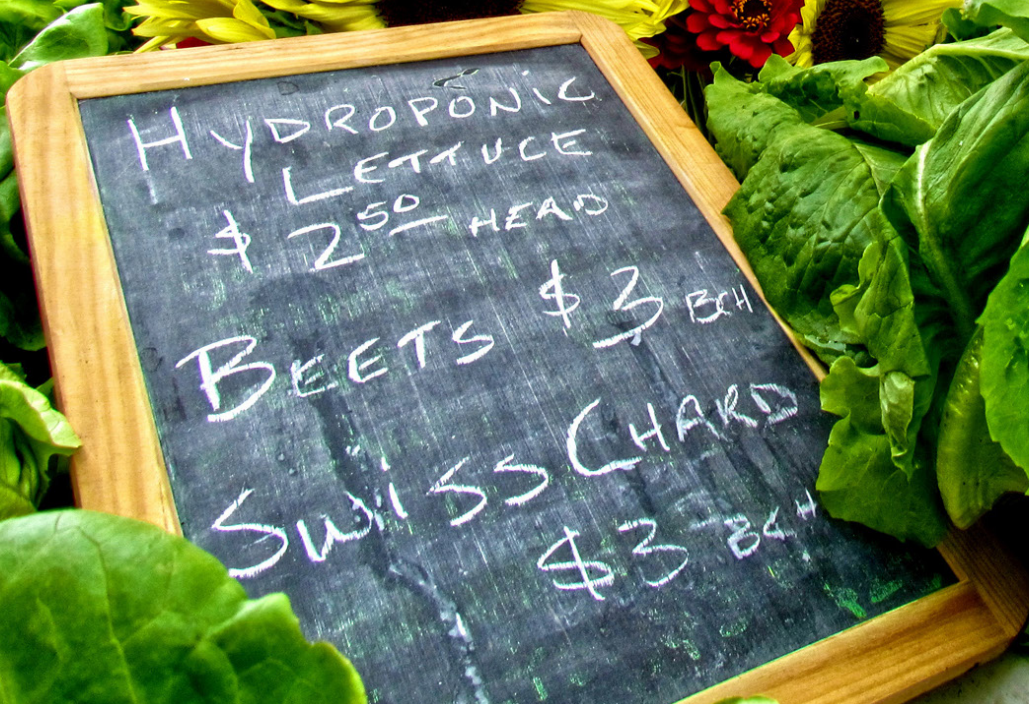 HYDROPONIC
LETTUCE
$2.50 HEAD
BEETS $3 BCH
SWISS CHARD
$3 BCH